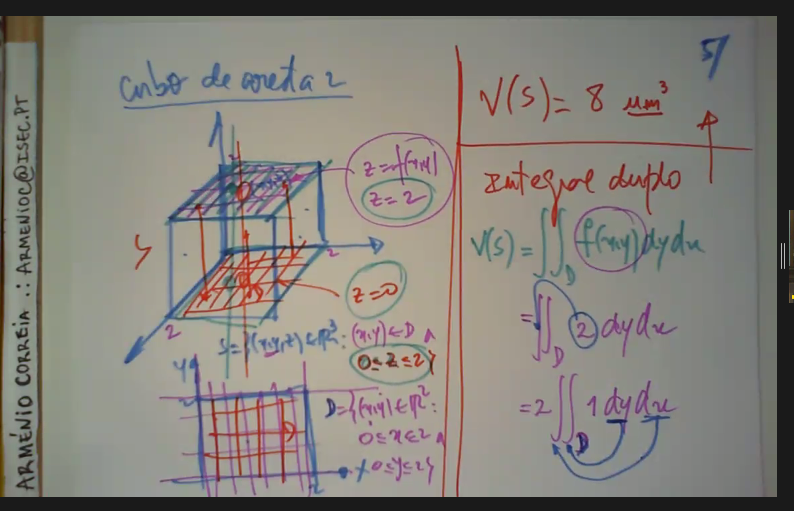 ARMÉNIO CORREIA .: ARMENIOC@ISEC.PT
Cubo de aresta 2
z=f(x,y)
z=2
2
2
2
S
z=0
S={(x,y,z)∈ℝ³: (x,y)∈D ∧
0≤z≤2}
y
2
D
x
2
D={(x,y)∈ℝ²:
0≤x≤2 ∧
0≤y≤2}
5/
V(S)= 8 um³
Integral duplo
V(S)=∬_D f(x,y) dy dx
=∬_D 2 dy dx
=2∬_D 1 dy dx